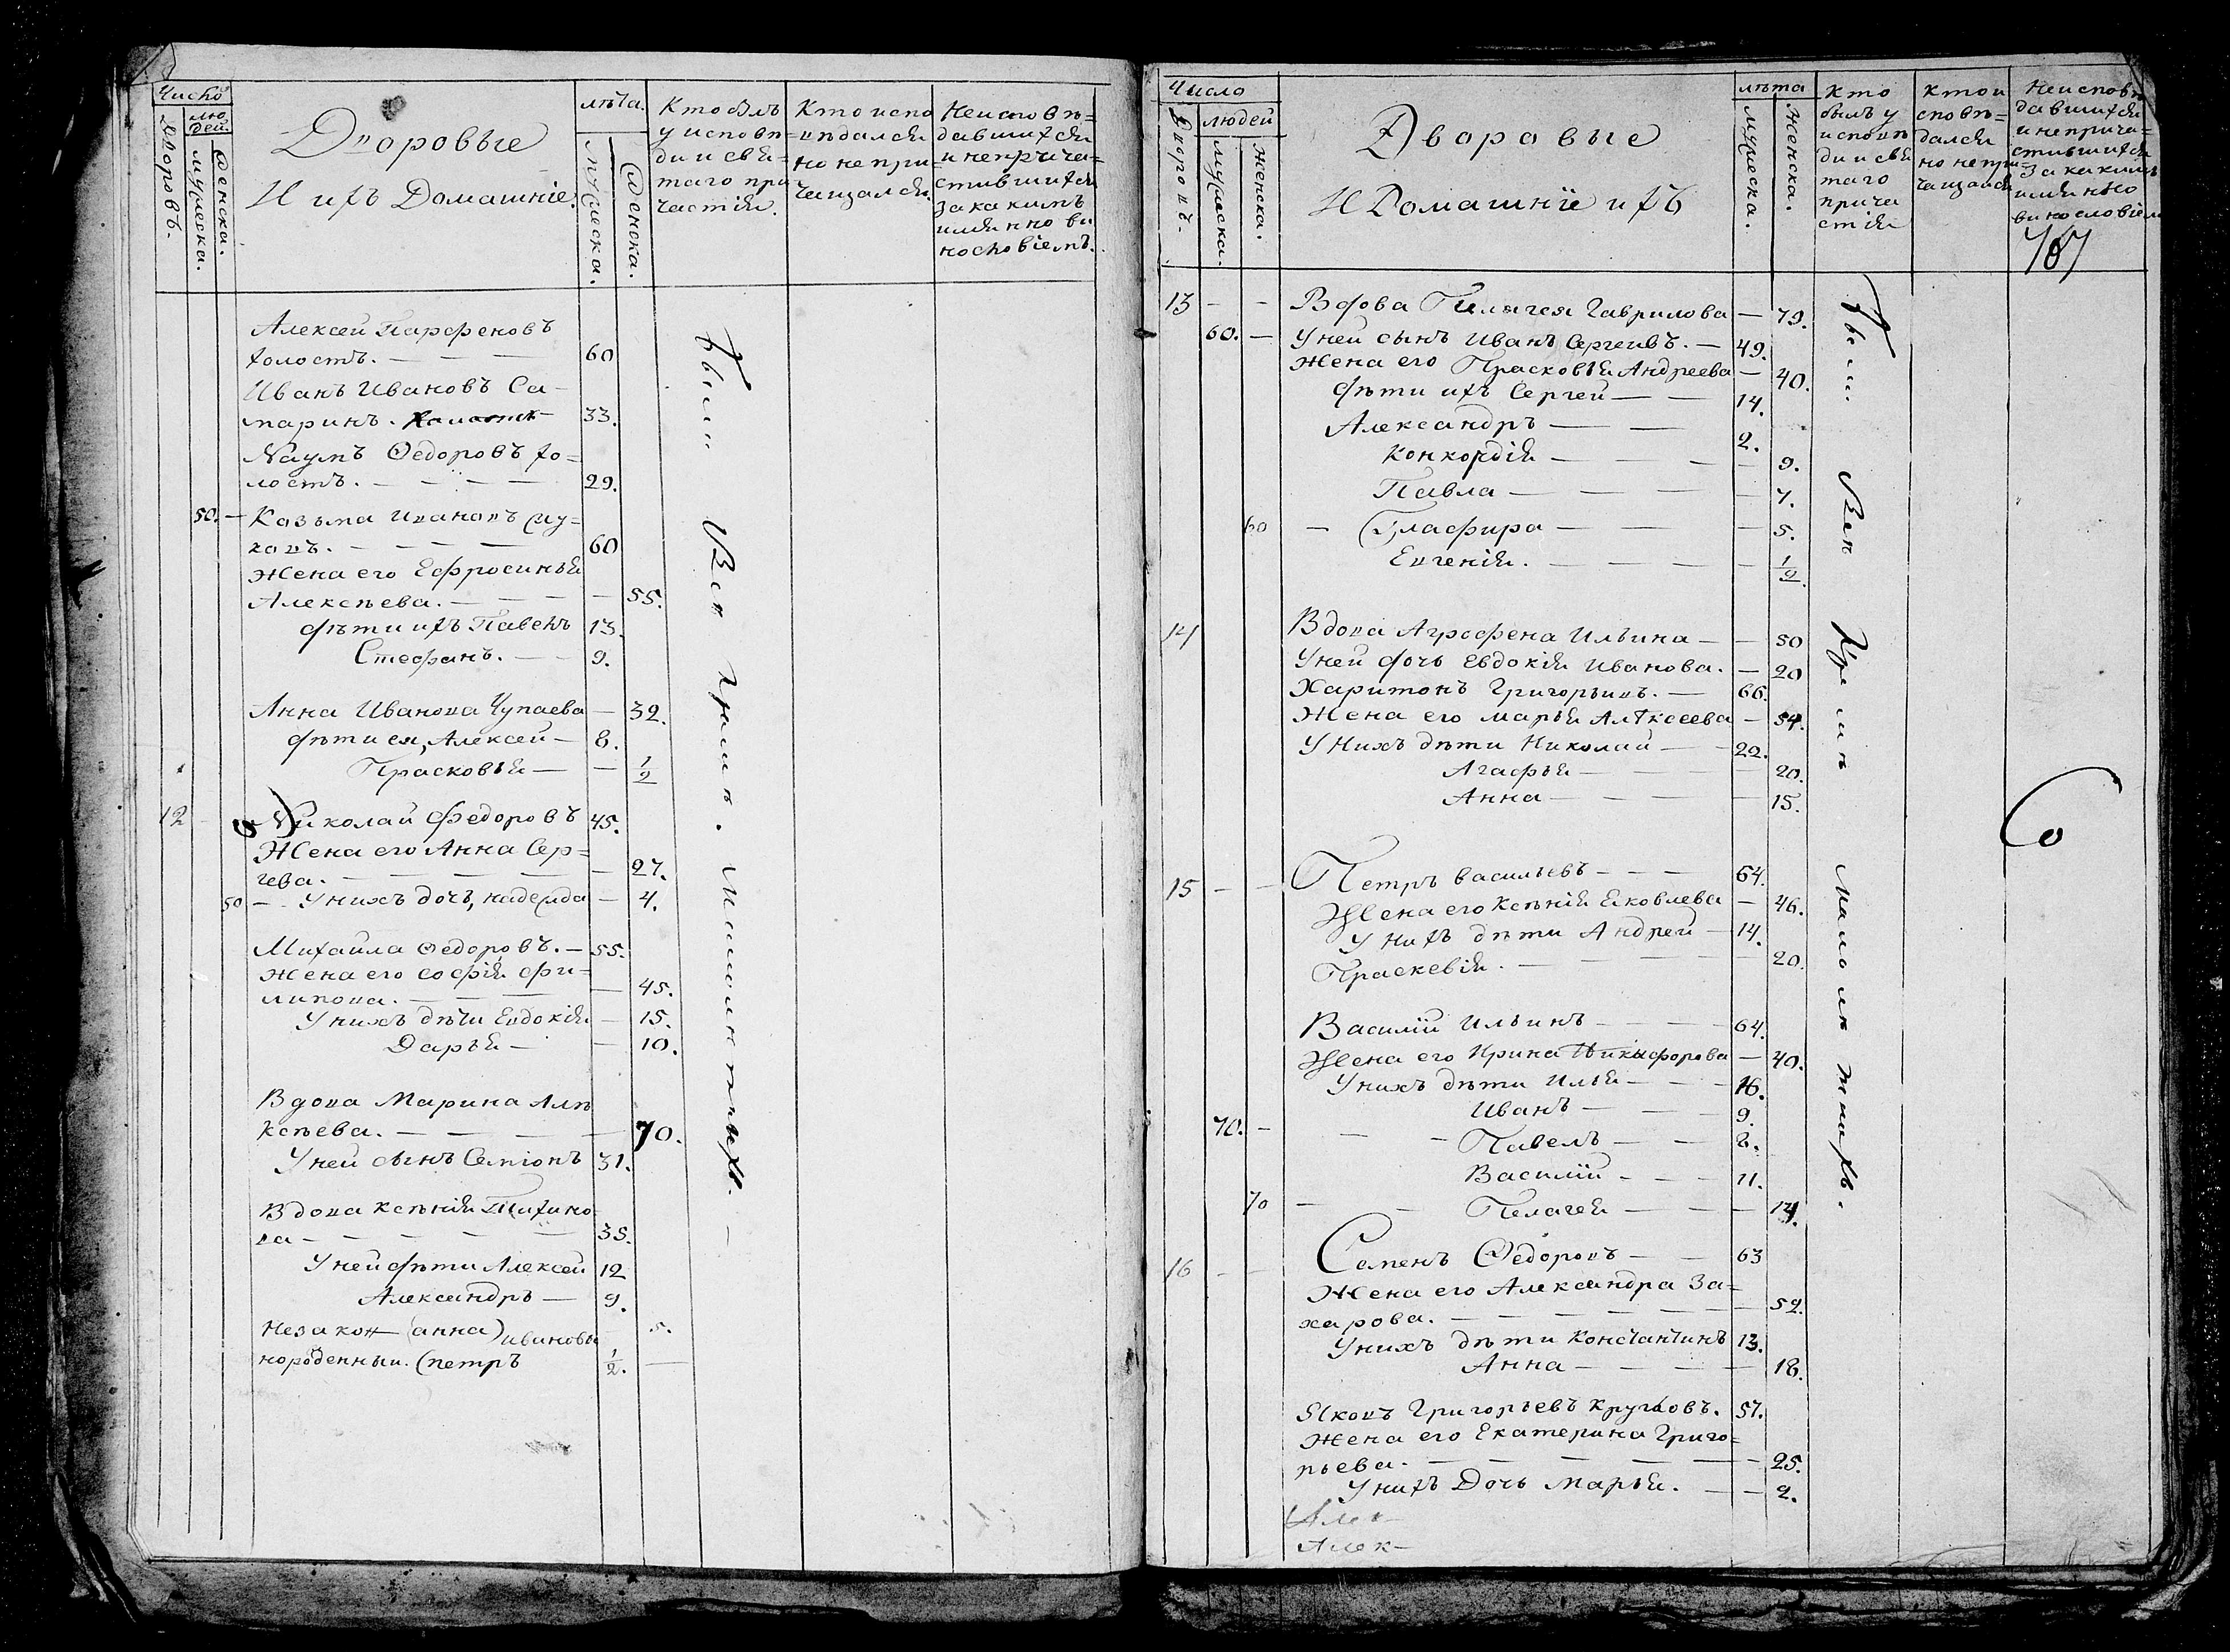 Число
Дворовъ.
лю
дей
мужеска.
женска.
Дворовые
И ихъ Домашніе.
лѣта.
мужеска.
женска.
Кто былъ
у исповѣ=
ди и свя=
таго при
частія.
Кто испо
вѣдался
но не при=
чащался.
Неисповѣ=
давшихся
и неприча=
стившихся
за какимъ
имянно ви
нословіемъ.
Алексей Парфеновъ
холостъ. — — — 60
Иванъ Ивановъ Са-
маринъ. Холостъ 33.
Наумъ Ѳедоровъ хо=
лостъ. — — — — 29.
50. — Козьма Ивановъ
60
Жена его Ефросинья
Алексѣева. — — — — 55.
дѣти ихъ Павелъ 13.
Стефанъ. — — 9.
Анна Иванова Чупаева — 32.
дѣти ея, Алексей — 8.
Прасковья — — 1/2
12 Николай Федоровъ 45.
Жена его Анна Сер=
гева. — — — — 27.
50 — У нихъ дочь, надежда — 4.
Михаила Ѳедоровъ. — 55.
Жена его софія фи=
липова. — — — — 45.
У нихъ дѣти Евдокія — 15.
Дарья — — 10.
Вдова Марина Але
ксѣева. — — — — 70.
У ней сынъ Семіонъ 31.
Вдова Ксѣнія Тихино
ва — — — — — 35.
У ней дѣти Алексей 12
Александръ — 9.
Незакон (анна) ивановы 5.
норожденныи. (петръ 1/2. —
Были Всѣ При нѣ. Малолѣтныхъ. —
Число
Дворовъ.
людей
мужеска.
женска.
Дворовые
И Домашніе ихъ
лѣта
мужеска.
женска.
Кто
былъ у
исповѣ
ди и свя
таго
прича
стія
Кто и
сповѣ=
дался
но не при=
чащался
Неисповѣ
давшихся
и неприча=
стившихся
За какимъ
имянно
винословіем
767
13 — — Вдова Пелагея Гаврилова — 79.
60. — У ней сынъ Иванъ Сергеивъ. — 49.
Жена его Прасковья Андреева — 40.
дѣти ихъ Сергей — — 14.
Александръ — — 2.
Конкордія — — — — 9.
Павла — — — — 7.
60 — Глафира — — — 5.
Евгенія. — — — — 1/2.
14 Вдова Агрофена Ильина — — 50
У ней дочь Евдокія Иванова. — 20
Харитонъ Григорьивъ. — 66.
Жена его марья Алѣксеева — 54.
У Нихъ дѣти Николай — — 22.
Агафья — — — — 20.
Анна — — — — 15.
15 — — Петръ васильевъ — — — 64.
Жена его Ксѣнія Яковлева — 46.
У Нихъ дѣти Андрей — 14.
Праскевія. — — — — — 20.
Василій Ильинъ — — — — 64.
Жена его Ирина Никифорова — 40.
У нихъ дѣти Илья — — — 16.
Иванъ — — — 9.
70. — — — Павелъ — — 2.
Василій — — — 11.
70 — — Пелагея — — — 14.
16 — — Семенъ Ѳедоровъ — — 63
Жена его Александра За=
харова. — — — — — — — 52.
У нихъ дѣти Константинъ 13.
Анна — — — — — 18.
Яковъ Григорьевъ Кругловъ. 57.
Жена его Екатерина Григо=
рьева. — — — — — — 25.
У нихъ Дочь Марья. — — 2.
Алек—
Алек—
Были Всѣ При нѣ Малолѣтнихъ.